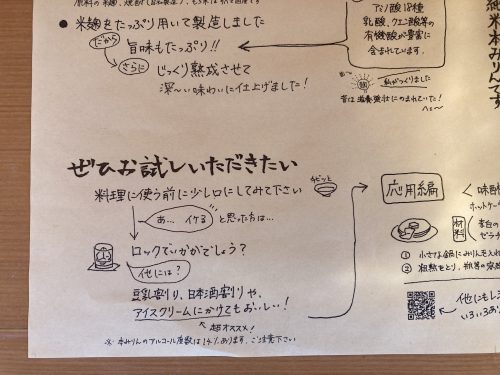 ● 米麹をたっぷり用いて製造しました
だから
旨味もたっぷり!!
さらに
じっくり熟成させて
深〜い味わいに仕上げました!
アミノ酸18種
乳酸、クエン酸等の
有機酸が豊富に
含まれています。
私がつくりました
昔は滋養強壮にのまれていた!
へぇ〜
純米本みりんです
ぜひお試しいただきたい
料理に使う前に少し口にしてみて下さい
チビッと
あ… イケる と思った方は…
ロックでいかがでしょう?
他には?
豆乳割り、日本酒割りや、
アイスクリームにかけてもおいしい!
超オススメ!
※ 本みりんのアルコール度数は14%あります。ご注意下さい
応用編
ホットケー
材料
ゼラチ
① 小さな鍋にみりんを入れ
② 粗熱をとり、
他にもレシ
いろいろあ